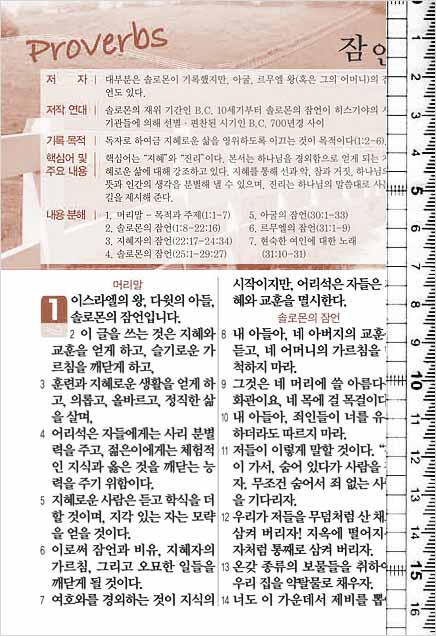 Proverbs
잠언
저 자 대부분은 솔로몬이 기록했지만, 아굴, 르무엘 왕(혹은 그의 어머니)의 잠
언도 있다.
저작 연대 솔로몬의 재위 기간인 B.C. 10세기부터 솔로몬의 잠언이 히스기야의 서
기관들에 의해 선별 · 편찬된 시기인 B.C. 700년경 사이
기록 목적 독자로 하여금 지혜로운 삶을 영위하도록 이끄는 것이 목적이다(1:2~6).
핵심어 및 핵심어는 “지혜”와 “진리”이다. 본서는 하나님을 경외함으로 얻게 되는
주요 내용 혜로운 삶에 대해 강조하고 있다. 지혜를 통해 선과 악, 참과 거짓, 하나님의
뜻과 인간의 생각을 분별해 낼 수 있으며, 진리는 하나님의 말씀대로
길을 제시해 준다.
내용 분해 1. 머리말 – 목적과 주제(1:1-7)
2. 솔로몬의 잠언(1:8-22:16)
3. 지혜자의 잠언(22:17-24:34)
4. 솔로몬의 잠언(25:1-29:27)
5. 아굴의 잠언(30:1-33)
6. 르무엘의 잠언(31:1-9)
7. 현숙한 여인에 대한 노래
(31:10-31)
머리말
1 이스라엘의 왕, 다윗의 아들,
솔로몬의 잠언입니다.
2 이 글을 쓰는 것은 지혜와
교훈을 얻게 하고, 슬기로운 가
르침을 깨닫게 하고,
3 훈련과 지혜로운 생활을 얻게 하
고, 의롭고, 올바르고, 정직한 삶
을 살며,
4 어리석은 자들에게는 사리 분별
력을 주고, 젊은이에게는 체험적
인 지식과 옳은 것을 깨닫는 능
력을 주기 위함이다.
5 지혜로운 사람은 듣고 학식을 더
할 것이며, 지각 있는 자는 모략
을 얻을 것이다.
6 이로써 잠언과 비유, 지혜자의
가르침, 그리고 오묘한 일들을
깨닫게 될 것이다.
7 여호와를 경외하는 것이 지식의
시작이지만, 어리석은 자들은
혜와 교훈을 멸시한다.
솔로몬의 잠언
8 내 아들아, 네 아버지의 교훈
듣고, 네 어머니의 가르침을
척하지 마라.
9 그것은 네 머리에 쓸 아름다
화관이요, 네 목에 걸 목걸이다
10 내 아들아, 죄인들이 너를 유
하더라도 따르지 마라.
11 저들이 이렇게 말할 것이다. “
이 가서, 숨어 있다가 사람을
자. 무조건 숨어서 죄 없는 사
을 기다리자.
12 우리가 저들을 무덤처럼 산 채
삼켜 버리자! 지옥에 떨어지
자처럼 통째로 삼켜 버리자.
13 온갖 종류의 보물들을 취하여
우리 집을 약탈물로 채우자.
14 너도 이 가운데서 제비를 뽑
1
2
3
4
5
6
7
8
9
10
11
12
13
14
15
16